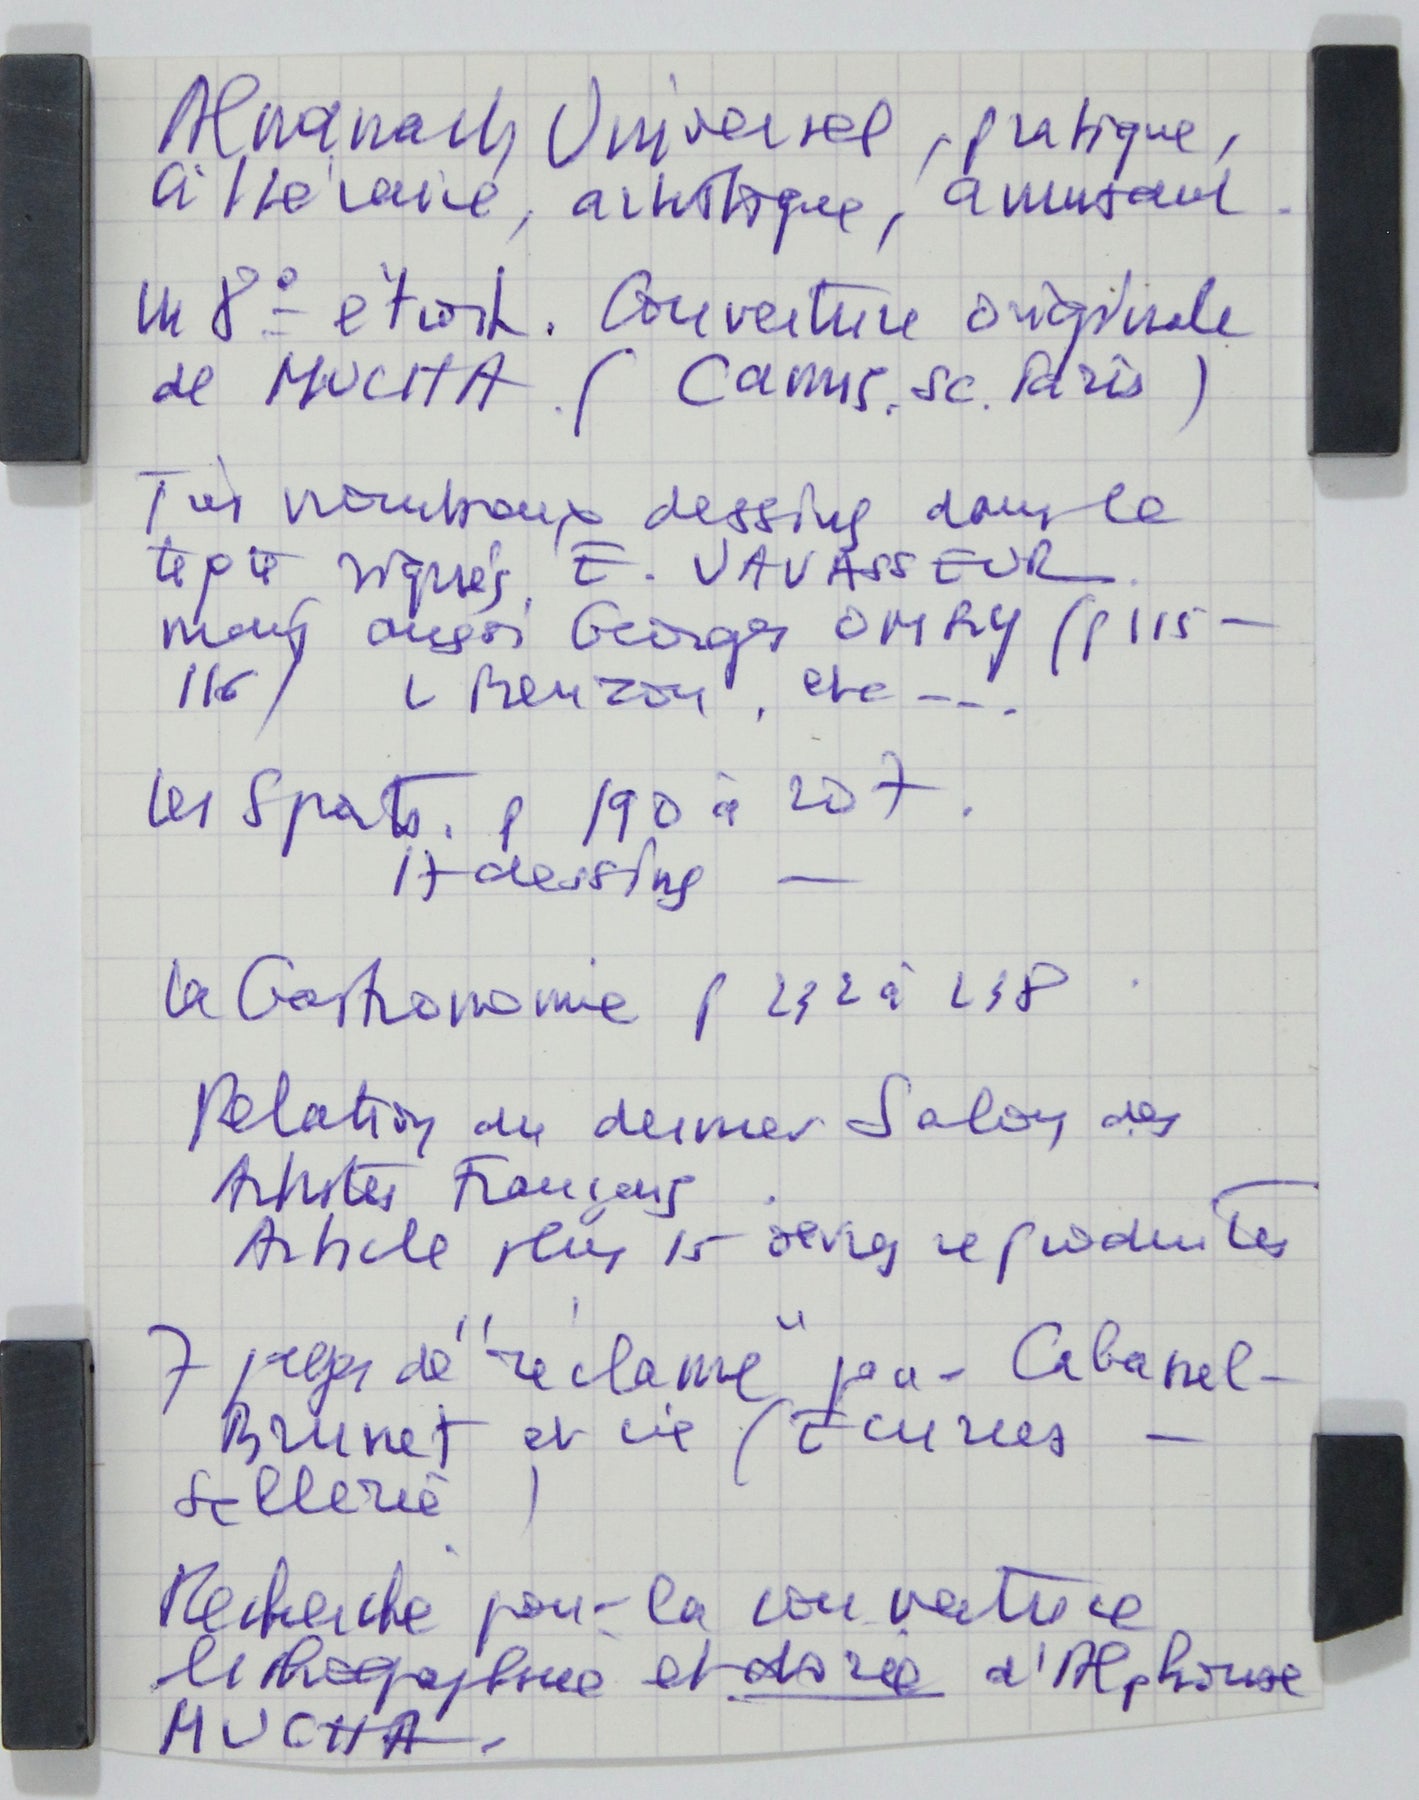 Almanach Universel, pratique,
littéraire, artistique, amusant.
in 8° étroit. Couverture originale
de MUCHA. (Camis. sc. Paris)
Très nombreux dessins dans le
texte signés E. VAVASSEUR.
mais aussi Georges OMRY (p 115-
116) L Benzon, etc ---.
Les Sports. p 190 à 207.
17 dessins —
La Gastronomie p 232 à 238.
Relation du dernier Salon des
Artistes Français.
Article plus 15 œuvres reproduites
7 pages de "réclame" pour Cabanel-
Brunet et cie (Ecuries —
Sellerie)
Recherché pour la couverture
lithographiée et dorée d'Alphonse
MUCHA.